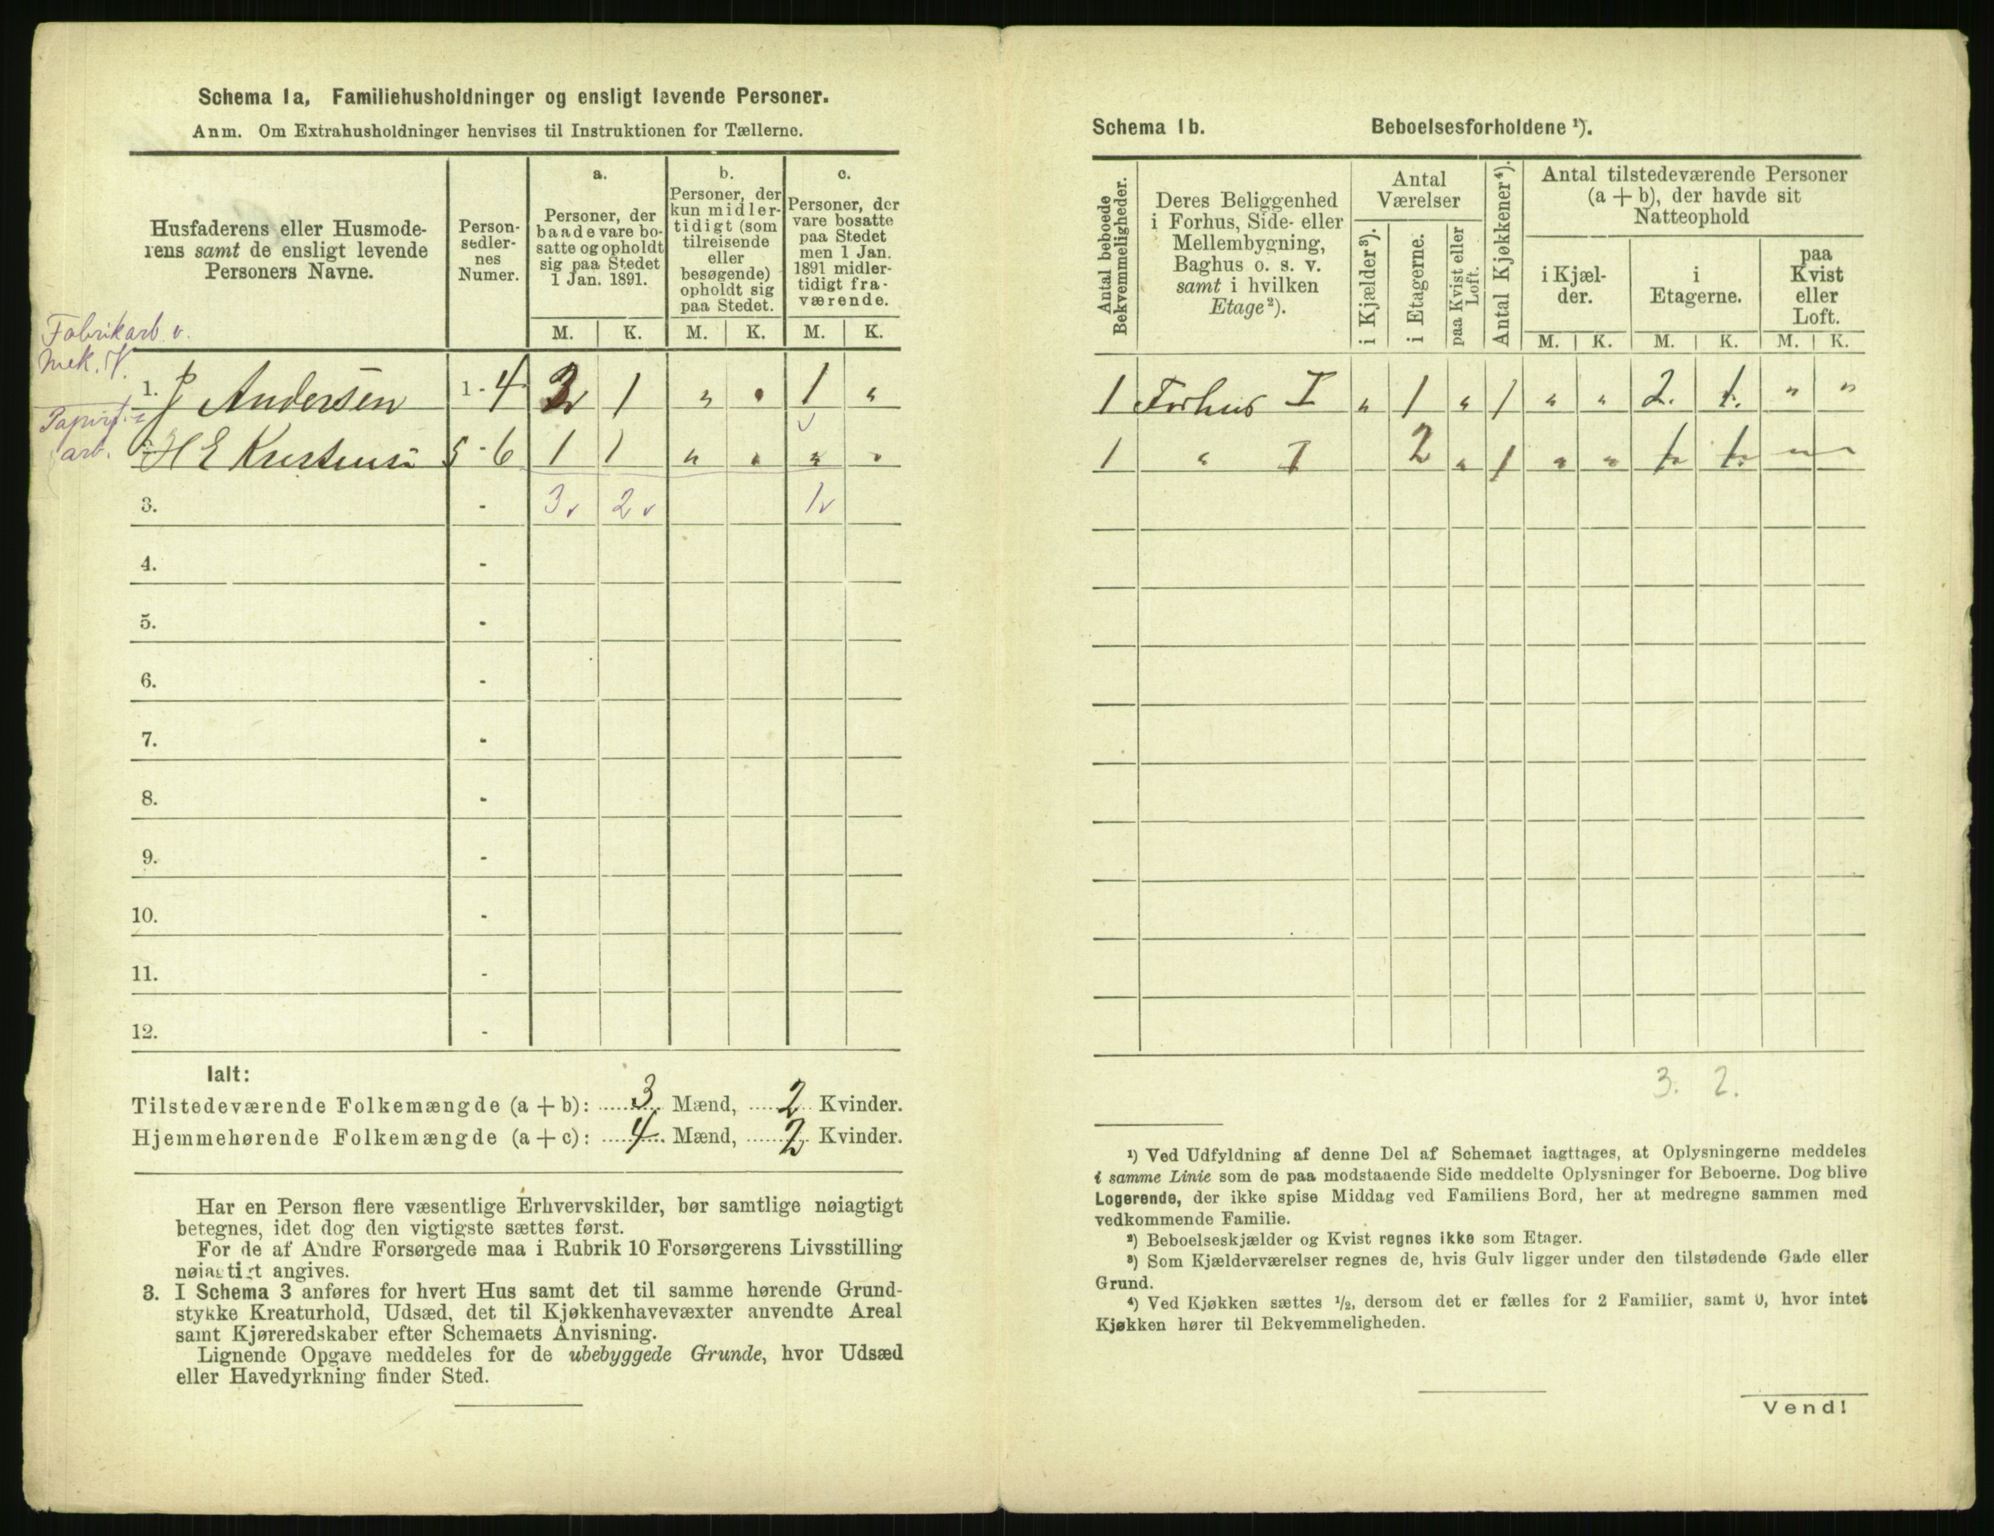 Schema 1a, Familiehusholdninger og ensligt levende Personer.
Anm. Om Extrahusholdninger henvises til Instruktionen for Tællerne.
Husfaderens eller Husmode-
rens samt de ensligt levende
Personers Navne.
Person-
sedler-
nes
Numer.
a.
Personer, der
baade vare bo-
satte og opholdt
sig paa Stedet
1 Jan. 1891.
b.
Personer, der
kun midler-
tidigt (som
tilreisende
eller
besøgende)
opholdt sig
paa Stedet.
c.
Personer, der
vare bosatte
paa Stedet
men 1 Jan.
1891 midler-
tidigt fra-
værende.
M. K. M. K. M. K.
Fabrikarb v.
Mek. V.
1. P Andersen 1-4 2 1 " " 1 "
Papirf.
arb.
H E Kristensen 5-6 1 1 " " " "
3. - 3 2 1
4. -
5. -
6. -
7. -
8. -
9. -
10. -
11. -
12. -
Ialt:
Tilstedeværende Folkemængde (a + b): 3 Mænd, 2 Kvinder.
Hjemmehørende Folkemængde (a + c): 4 Mænd, 2 Kvinder.
Har en Person flere væsentlige Erhvervskilder, bør samtlige nøiagtigt
betegnes, idet dog den vigtigste sættes først.
For de af Andre Forsørgede maa i Rubrik 10 Forsørgerens Livsstilling
nøiagtigt angives.
3. I Schema 3 anføres for hvert Hus samt det til samme hørende Grund-
stykke Kreaturhold, Udsæd, det til Kjøkkenhavevæxter anvendte Areal
samt Kjøreredskaber efter Schemaets Anvisning.
Lignende Opgave meddeles for de ubebyggede Grunde, hvor Udsæd
eller Havedyrkning finder Sted.
Schema 1b. Beboelsesforholdene ¹).
Antal beboede
Bekvemmeligheder.
Deres Beliggenhed
i Forhus, Side- eller
Mellembygning,
Baghus o. s. v.
samt i hvilken
Etage ²).
Antal
Værelser
i Kjælder ³).
i Etagerne.
paa Kvist eller
Loft.
Antal Kjøkkener ⁴).
Antal tilstedeværende Personer
(a + b), der havde sit
Natteophold
i Kjæl-
der.
i
Etagerne.
paa
Kvist
eller
Loft.
M. K. M. K. M. K.
1 Forhus I " 1 " 1 " " 2. 1. " "
1 " I 2 " 1 " " 1 1 " "
3. 2.
¹) Ved Udfyldning af denne Del af Schemaet iagttages, at Oplysningerne meddeles
i samme Linie som de paa modstaaende Side meddelte Oplysninger for Beboerne. Dog blive
Logerende, der ikke spise Middag ved Familiens Bord, her at medregne sammen med
vedkommende Familie.
²) Beboelseskjælder og Kvist regnes ikke som Etager.
³) Som Kjælderværelser regnes de, hvis Gulv ligger under den tilstødende Gade eller
Grund.
⁴) Ved Kjøkken sættes ½, dersom det er fælles for 2 Familier, samt 0, hvor intet
Kjøkken hører til Bekvemmeligheden.
Vend!